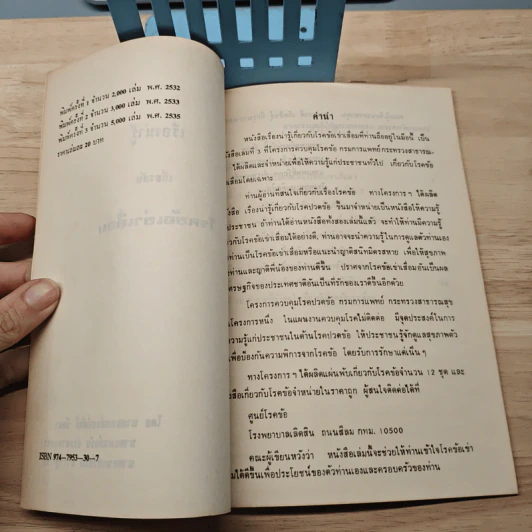 พิมพ์ครั้งที่ 1 จำนวน 2,000 เล่ม พ.ศ. 2532
พิมพ์ครั้งที่ 2 จำนวน 3,000 เล่ม พ.ศ. 2533
พิมพ์ครั้งที่ 3 จำนวน 5,000 เล่ม พ.ศ. 2535
ราคาเล่มละ 20 บาท
ISBN 974-7953-30-7
คำนำ
หนังสือเรื่องน่ารู้เกี่ยวกับโรคข้อเข่าเสื่อมที่ท่านถืออยู่ในมือนี้ เป็น
ังสือเล่มที่ 3 ที่โครงการควบคุมโรคข้อ กรมการแพทย์ กระทรวงสาธารณ-
ได้ผลิตและจำหน่ายเพื่อให้ความรู้แก่ประชาชนทั่วไป เกี่ยวกับโรคข้อ
เสื่อมโดยเฉพาะ
ท่านผู้อ่านที่สนใจเกี่ยวกับเรื่องโรคข้อ ทางโครงการฯ ได้ผลิต
ังสือ เรื่องน่ารู้เกี่ยวกับโรคปวดข้อ ขึ้นมาจำหน่ายเป็นหนังสือให้ความรู้
ประชาชน ถ้าท่านได้อ่านหนังสือทั้งสองเล่มนี้แล้ว จะทำให้ท่านมีความรู้
เกี่ยวกับโรคข้อเข่าเสื่อมได้อย่างดี, ท่านอาจจะนำความรู้ในการดูแลตัวท่านเอง
ท่านเป็นโรคข้อเข่าเสื่อมหรือแนะนำญาติสนิทมิตรสหาย เพื่อให้สุขภาพ
ท่านและญาติพี่น้องของท่านดีขึ้น ปราศจากโรคข้อเข่าเสื่อมอันเป็นผล
เศรษฐกิจของประเทศชาติอันเป็นที่รักของเราดีขึ้นอีกด้วย
โครงการควบคุมโรคปวดข้อ กรมการแพทย์ กระทรวงสาธารณสุข
โครงการหนึ่ง ในแผนงานควบคุมโรคไม่ติดต่อ มีจุดประสงค์ในการ
ความรู้แก่ประชาชนในด้านโรคปวดข้อ ให้ประชาชนรู้จักดูแลสุขภาพตัว
เพื่อป้องกันความพิการจากโรคข้อ โดยรับการรักษาแต่เนิ่นๆ
ทางโครงการฯ ได้ผลิตแผ่นพับเกี่ยวกับโรคข้อจำนวน 12 ชุด และ
ังสือเกี่ยวกับโรคข้อจำหน่ายในราคาถูก ผู้สนใจติดต่อได้ที่
ศูนย์โรคข้อ
โรงพยาบาลเลิดสิน ถนนสีลม กทม. 10500
คณะผู้เขียนหวังว่า หนังสือเล่มนี้จะช่วยให้ท่านเข้าใจโรคข้อเข่า
มได้ดีขึ้นเพื่อประโยชน์ของตัวท่านเองและครอบครัวของท่าน